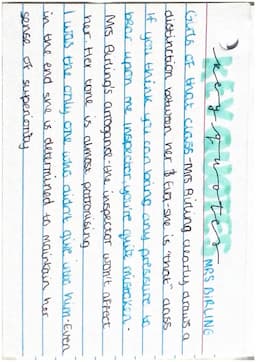 key quotes
MRS BIRLING
Girls of that class - Mrs Birling clearly draws a
distinction between her & Eva - she is "that" class
If you think you can bring any pressure to
bear upon me Inspector you're quite mistaken -
Mrs Birling's arrogance. the inspector won't affect
her. Her tone is almost patronising
I was the only one who didn't give into him - Even
in the end she is determined to maintain her
sense of superiority